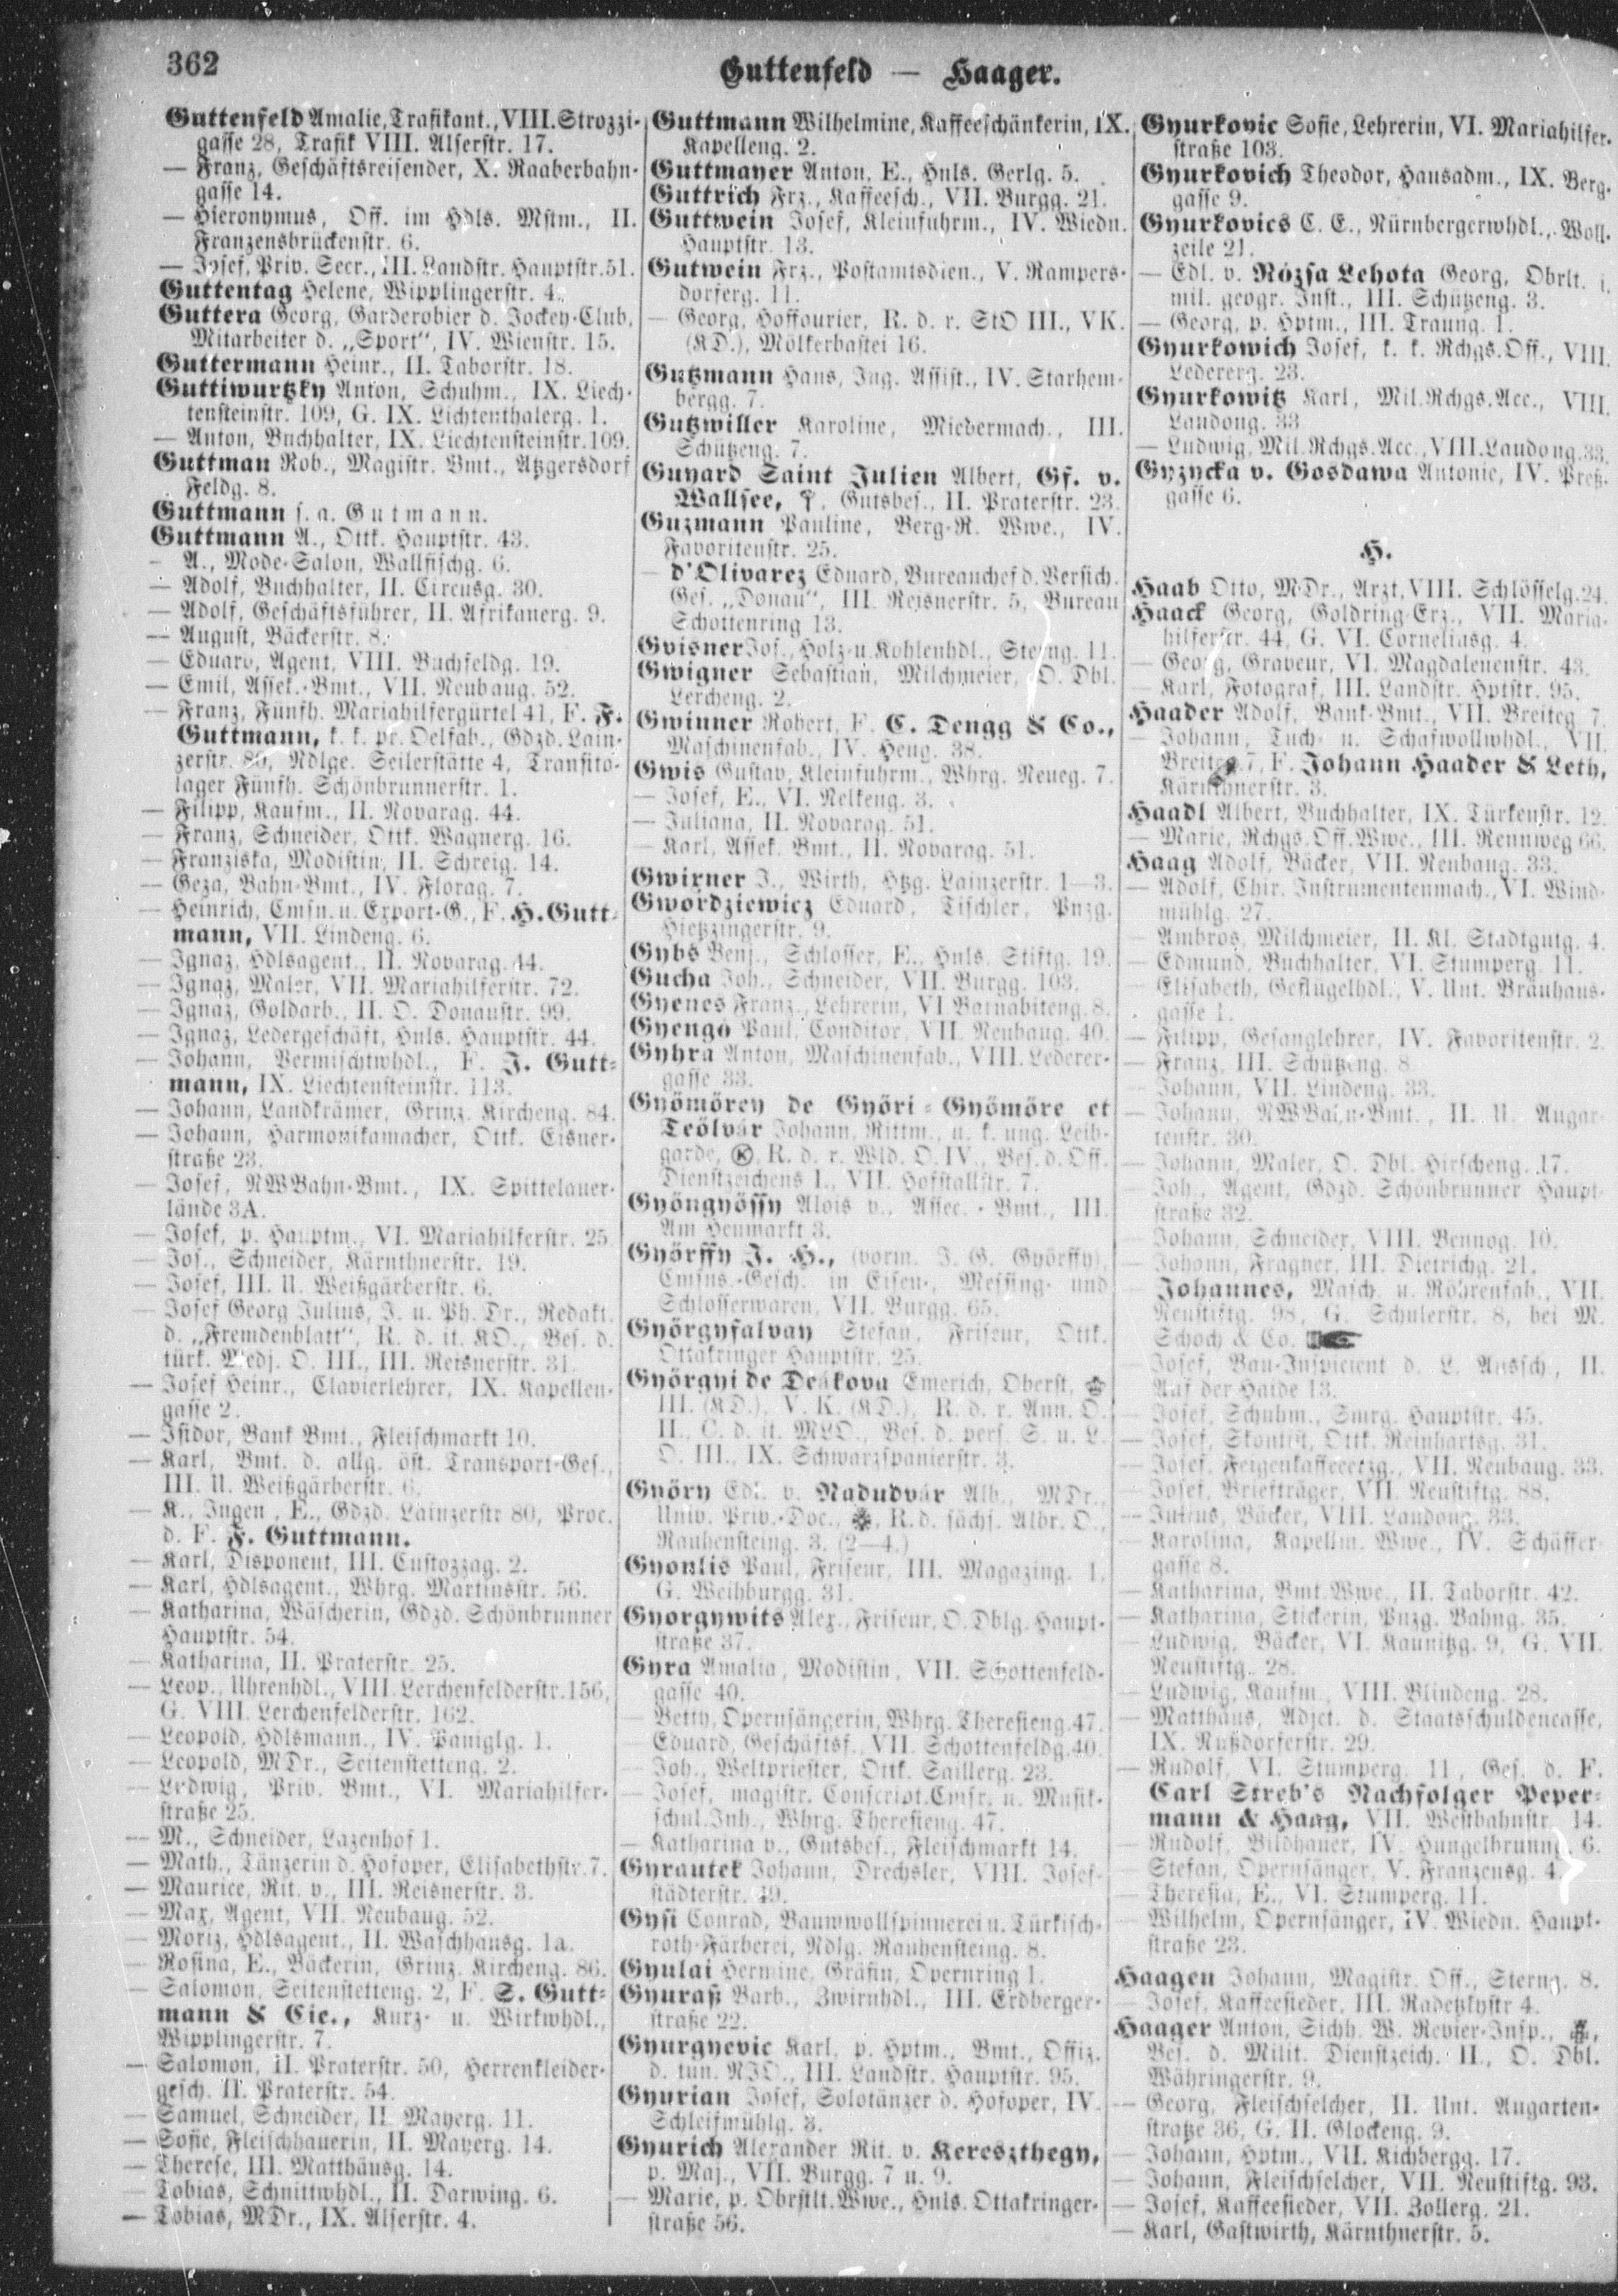 362
Guttenfeld — Haager.
Guttenfeld Amalie, Trafikant., VIII. Strozzi-
gasse 28, Trafik VIII. Alserstr. 17.
— Franz, Geschäftsreisender, X. Raaberbahn-
gasse 14.
— Hieronymus, Off. im Hdls. Mstm., II.
Franzensbrückenstr. 6.
— Josef, Priv. Secr., III. Landstr. Hauptstr. 51.
Guttentag Helene, Wipplingerstr. 4.
Guttera Georg, Garderobier d. Jockey-Club,
Mitarbeiter d. „Sport“, IV. Wienstr. 15.
Guttermann Heinr., II. Taborstr. 18.
Guttiwurtzky Anton, Schuhm., IX. Liech-
tensteinstr. 109, G. IX. Lichtenthalerg. 1.
— Anton, Buchhalter, IX. Liechtensteinstr. 109.
Guttman Rob., Magistr. Bmt., Atzgersdorf
Feldg. 8.
Guttmann s. a. Gutmann.
Guttmann A., Ottk. Hauptstr. 43.
— A., Mode-Salon, Wallfischg. 6.
— Adolf, Buchhalter, II. Circusg. 30.
— Adolf, Geschäftsführer, II. Afrikanerg. 9.
— August, Bäckerstr. 8.
— Eduard, Agent, VIII. Buchfeldg. 19.
— Emil, Assek.-Bmt., VII. Neubaug. 52.
— Franz, Fünfh. Mariahilfergürtel 41, F. F.
Guttmann, k. k. pr. Oelfab., Gdzd. Lain-
zerstr. 80, Ndlge. Seilerstätte 4, Transito-
lager Fünfh. Schönbrunnerstr. 1.
— Filipp, Kaufm., II. Novarag. 44.
— Franz, Schneider, Ottk. Wagnerg. 16.
— Franziska, Modistin, II. Schreig. 14.
— Geza, Bahn-Bmt., IV. Florag. 7.
— Heinrich, Cmsn. u. Export-G., F. H. Gutt-
mann, VII. Lindeng. 6.
— Ignaz, Hdlsagent., II. Novarag. 44.
— Ignaz, Maler, VII. Mariahilferstr. 72.
— Ignaz, Goldarb., II. O. Donaustr. 99.
— Ignaz, Ledergeschäft, Hnls. Hauptstr. 44.
— Johann, Vermischtwhdl., F. J. Gutt-
mann, IX. Liechtensteinstr. 113.
— Johann, Landkrämer, Grinz. Kircheng. 84.
— Johann, Harmonikamacher, Ottk. Eisner-
straße 23.
— Josef, NWBahn-Bmt., IX. Spittelauer-
lände 3A.
— Josef, p. Hauptm., VI. Mariahilferstr. 25.
— Jos., Schneider, Kärnthnerstr. 19.
— Josef, III. U. Weißgärberstr. 6.
— Josef Georg Julius, J. u. Ph. Dr., Redakt.
d. „Fremdenblatt“, R. d. it. KO., Bes. d.
türk. Medj. O. III., III. Reisnerstr. 31.
— Josef Heinr., Clavierlehrer, IX. Kapellen-
gasse 2.
— Isidor, Bank Bmt., Fleischmarkt 10.
— Karl, Bmt. d. allg. öst. Transport-Ges.,
III. U. Weißgärberstr. 6.
— K., Ingen., E., Gdzd. Lainzerstr. 80, Proc.
d. F. F. Guttmann.
— Karl, Disponent, III. Custozzag. 2.
— Karl, Hdlsagent., Whrg. Martinsstr. 56.
— Katharina, Wäscherin, Gdzd. Schönbrunner
Hauptstr. 54.
— Katharina, II. Praterstr. 25.
— Leop., Uhrenhdl., VIII. Lerchenfelderstr. 156,
G. VIII. Lerchenfelderstr. 162.
— Leopold, Hdlsmann., IV. Paniglg. 1.
— Leopold, MDr., Seitenstetteng. 2.
— Ludwig, Priv. Bmt., VI. Mariahilfer-
straße 25.
— M., Schneider, Lazenhof 1.
— Math., Tänzerin d. Hofoper, Elisabethstr. 7.
— Maurice, Rit. v., III. Reisnerstr. 3.
— Max, Agent, VII. Neubaug. 52.
— Moriz, Hdlsagent., II. Waschhausg. 1a.
— Rosina, E., Bäckerin, Grinz. Kircheng. 86.
— Salomon, Seitenstetteng. 2, F. S. Gutt-
mann & Cie., Kurz- u. Wirkwhdl.,
Wipplingerstr. 7.
— Salomon, II. Praterstr. 50, Herrenkleider-
gesch. II. Praterstr. 54.
— Samuel, Schneider, II. Mayerg. 11.
— Sofie, Fleischhauerin, II. Mayerg. 14.
— Therese, III. Matthäusg. 14.
— Tobias, Schnittwhdl., II. Darwing. 6.
— Tobias, MDr., IX. Alserstr. 4.
Guttmann Wilhelmine, Kaffeeschänkerin, IX.
Kapelleng. 2.
Guttmayer Anton, E., Hnls. Gerlg. 5.
Guttrich Frz., Kaffeesch., VII. Burgg. 21.
Guttwein Josef, Kleinfuhrm., IV. Wiedn.
Hauptstr. 13.
Gutwein Frz., Postamtsdien., V. Rampers-
dorferg. 11.
— Georg, Hoffourier, R. d. r. StO III., VK.
(KD.), Mölkerbastei 16.
Gutzmann Hans, Ing. Assist., IV. Starhem-
bergg. 7.
Gutzwiller Karoline, Miedermach., III.
Schützeng. 7.
Guyard Saint Julien Albert, Gf. v.
Wallsee, Gutsbes., II. Praterstr. 23.
Guzmann Pauline, Berg-R. Wwe., IV.
Favoritenstr. 25.
— d'Olivarez Eduard, Bureauchef d. Versich.
Ges. „Donau“, III. Reisnerstr. 5, Bureau
Schottenring 13.
Gvisner Jos., Holz- u. Kohlenhdl., Sterng. 11.
Gwigner Sebastian, Milchmeier, O. Dbl.
Lercheng. 2.
Gwinner Robert, F. C. Dengg & Co.,
Maschinenfab., IV. Heug. 38.
Gwis Gustav, Kleinfuhrm., Whrg. Neueg. 7.
— Josef, E., VI. Nelkeng. 3.
— Juliana, II. Novarag. 51.
— Karl, Assek. Bmt., II. Novarag. 51.
Gwirner J., Wirth, Htzg. Lainzerstr. 1—3.
Gwordziewicz Eduard, Tischler, Pnzg.
Hietzingerstr. 9.
Gybs Benj., Schlosser, E., Hnls. Stiftg. 19.
Gucha Joh., Schneider, VII. Burgg. 103.
Gyenes Franz., Lehrerin, VI. Barnabiteng. 8.
Gyengö Paul, Conditor, VII. Neubaug. 40.
Gyhra Anton, Maschinenfab., VIII. Lederer-
gasse 33.
Gyömörey de Győri-Gyömöre et
Teölvár Johann, Rittm., u. k. ung. Leib-
garde, Ⓚ, R. d. r. Wld. O. IV., Bes. d. Off.
Dienstzeichens I., VII. Hofstallstr. 7.
Gyöngyössy Alois v., Assec.-Bmt., III.
Am Heumarkt 3.
Györffy J. H., (vorm. J. G. Györffy),
Cmsns.-Gesch. in Eisen-, Messing- und
Schlosserwaren, VII. Burgg. 65.
Györgyfalvay Stefan, Friseur, Ottk.
Ottakringer Hauptstr. 25.
Györgyi de Deákova Emerich, Oberst,
III. (KD.), V. K. (KD.), R. d. r. Ann. O.
II., C. d. it. MLO., Bes. d. pers. S. u. L.
O. III., IX. Schwarzspanierstr. 3.
Györy Edl. v. Nadudvár Alb., MDr.,
Univ. Priv.-Doc., R. d. sächs. Albr. O.,
Rauhensteing. 3. (2—4.)
Gyonlis Paul, Friseur, III. Magazing. 1,
G. Weihburgg. 31.
Gyorgywits Alex., Friseur, O. Dblg. Haupt-
straße 37.
Gyra Amalia, Modistin, VII. Schottenfeld-
gasse 40.
— Betty, Opernsängerin, Whrg. Theresieng. 47.
— Eduard, Geschäftsf., VII. Schottenfeldg. 40.
— Joh., Weltpriester, Ottk. Saillerg. 23.
— Josef, magistr. Conscript. Cmsr. u. Musik-
schul. Inh., Whrg. Theresieng. 47.
— Katharina v., Gutsbes., Fleischmarkt 14.
Gyrautek Johann, Drechsler, VIII. Josef-
städterstr. 49.
Gysi Conrad, Baumwollspinnerei u. Türkisch-
roth-Färberei, Ndlg. Rauhensteing. 8.
Gyulai Hermine, Gräfin, Opernring 1.
Gyuraß Barb., Zwirnhdl., III. Erdberger-
straße 22.
Gyurgyevic Karl, p. Hptm., Bmt., Offiz.
d. tun. NIO., III. Landstr. Hauptstr. 95.
Gyurian Josef, Solotänzer d. Hofoper, IV.
Schleifmühlg. 3.
Gyurich Alexander Rit. v. Kereszthegy,
p. Maj., VII. Burgg. 7 u. 9.
— Marie, p. Obrstlt. Wwe., Hnls. Ottakringer-
straße 56.
Gyurkovic Sofie, Lehrerin, VI. Mariahilfer-
straße 103.
Gyurkovich Theodor, Hausadm., IX. Berg-
gasse 9.
Gyurkovics C. E., Nürnbergerwhdl., Woll-
zeile 21.
— Edl. v. Rózsa Lehota Georg, Obrlt. i.
mil. geogr. Inst., III. Schützeng. 3.
— Georg, p. Hptm., III. Traung. 1.
Gyurkowich Josef, k. k. Rchgs. Off., VIII.
Ledererg. 23.
Gyurkowitz Karl, Mil. Rchgs. Acc., VIII.
Laudong. 33
— Ludwig, Mil. Rchgs. Acc., VIII. Laudong. 33.
Gyzycka v. Gosdawa Antonie, IV. Preß-
gasse 6.
H.
Haab Otto, MDr., Arzt, VIII. Schlösselg. 24.
Haack Georg, Goldring-Erz., VII. Maria-
hilferstr. 44, G. VI. Corneliasg. 4.
— Georg, Graveur, VI. Magdalenenstr. 43.
— Karl, Fotograf, III. Landstr. Hptstr. 95.
Haader Adolf, Bank-Bmt., VII. Breiteg. 7.
— Johann, Tuch- u. Schafwollwhdl., VII.
Breiteg. 7, F. Johann Haader & Leth,
Kärnthnerstr. 3.
Haadl Albert, Buchhalter, IX. Türkenstr. 12.
— Marie, Rchgs. Off. Wwe., III. Rennweg 66.
Haag Adolf, Bäcker, VII. Neubaug. 33.
— Adolf, Chir. Instrumentenmach., VI. Wind-
mühlg. 27.
— Ambros, Milchmeier, II. Kl. Stadtgutg. 4.
— Edmund, Buchhalter, VI. Stumperg. 11.
— Elisabeth, Geflügelhdl., V. Unt. Bräuhaus-
gasse 1.
— Filipp, Gesanglehrer, IV. Favoritenstr. 2.
— Franz, III. Schützeng. 8
— Johann, VII. Lindeng. 33.
— Johann, NWBahn-Bmt., II. U. Augar-
tenstr. 30.
— Johann, Maler, O. Dbl. Hirscheng. 17.
— Joh., Agent, Gdzd. Schönbrunner Haupt-
straße 32.
— Johann, Schneider, VIII. Bennog. 10.
— Johann, Fragner, III. Dietrichg. 21.
— Johannes, Masch. u. Röhrenfab., VII.
Neustiftg. 98, G. Schulerstr. 8, bei M.
Schoch & Co.
— Josef, Bau-Inspicient d. L. Aussch., II.
Auf der Haide 13.
— Josef, Schuhm., Smrg. Hauptstr. 45.
— Josef, Skontist, Ottk. Reinhartsg. 31.
— Josef, Feigenkaffeeerzg., VII. Neubaug. 33.
— Josef, Briefträger, VII. Neustiftg. 88.
— Julius, Bäcker, VIII. Laudong. 33.
— Karolina, Kapellm. Wwe., IV. Schäffer-
gasse 8.
— Katharina, Bmt. Wwe., II. Taborstr. 42.
— Katharina, Stickerin, Pnzg. Bahng. 35.
— Ludwig, Bäcker, VI. Kaunitzg. 9, G. VII.
Neustiftg. 28.
— Ludwig, Kaufm., VIII. Blindeng. 28.
— Matthäus, Adjct. d. Staatsschuldencasse,
IX. Nußdorferstr. 29.
— Rudolf, VI. Stumperg. 11, Ges. d. F.
Carl Streb's Nachfolger Peper-
mann & Haag, VII. Westbahnstr. 14.
— Rudolf, Bildhauer, IV. Hungelbrunng. 6.
— Stefan, Opernsänger, V. Franzensg. 4.
— Theresia, E., VI. Stumperg. 11.
— Wilhelm, Opernsänger, IV. Wiedn. Haupt-
straße 23.
Haagen Johann, Magistr. Off., Sterng. 8.
— Josef, Kaffeesieder, III. Radetzkystr 4.
Haager Anton, Sichh. W. Revier-Insp.,
Bes. d. Milit. Dienstzeich. II., O. Dbl.
Währingerstr. 9.
— Georg, Fleischselcher, II. Unt. Augarten-
straße 36, G. II. Glockeng. 9.
— Johann, Hptm., VII. Kichbergg. 17.
— Johann, Fleischselcher, VII. Neustiftg. 93.
— Josef, Kaffeesieder, VII. Zollerg. 21.
— Karl, Gastwirth, Kärnthnerstr. 5.